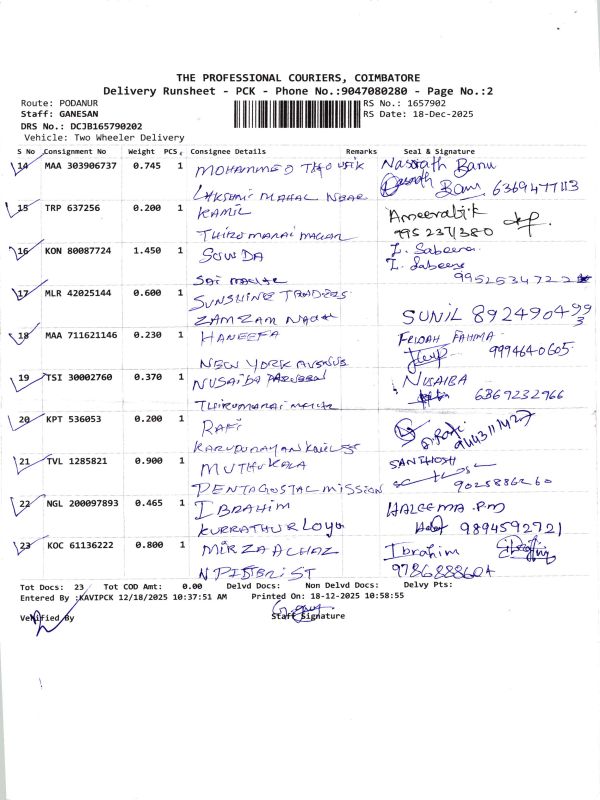 THE PROFESSIONAL COURIERS, COIMBATORE
Delivery Runsheet - PCK - Phone No.:9047080280 - Page No.:2
Route: PODANUR
RS No.: 1657902
Staff: GANESAN
RS Date: 18-Dec-2025
DRS No.: DCJB165790202
Vehicle: Two Wheeler Delivery
S No Consignment No Weight PCS. Consignee Details Remarks Seal & Signature
14 MAA 303906737 0.745 1 MOHAMMED Nasrath Banu
Banu 6369477113
MAHAL NEAR
15 TRP 637256 0.200 1 KAMIL Ameerabi.k
THIRUMARAI NAGAR
16 KON 80087724 1.450 1 SOWDA I. Sabeena
I. Sabeena
9952534722
17 MLR 42025144 0.600 1 SUNSHINE TRADERS
ZAMZAM NAGAR SUNIL 8924904993
18 MAA 711621146 0.230 1 HANEEFA FIDAH FAHIMA
9994640605
NEW YORK AVENUE
19 TSI 30002760 0.370 1 NUSAIBA PARVEEN NUSAIBA
6369232966
THIRUMARAI NAGAR
20 KPT 536053 0.200 1 RAFI
9443111427
21 TVL 1285821 0.900 1 MUTHUKALA SANTHOSH
PENTAGOSTAL MISSION 9025886260
22 NGL 200097893 0.465 1 IBRAHIM HALEEMA.PM
9894592721
23 KOC 61136222 0.800 1 MIRZA Ibrahim
ST 9786888604
Tot Docs: 23 Tot COD Amt: 0.00 Delvd Docs: Non Delvd Docs: Delvy Pts:
Entered By :KAVIPCK 12/18/2025 10:37:51 AM Printed On: 18-12-2025 10:58:55
Verified By Staff Signature